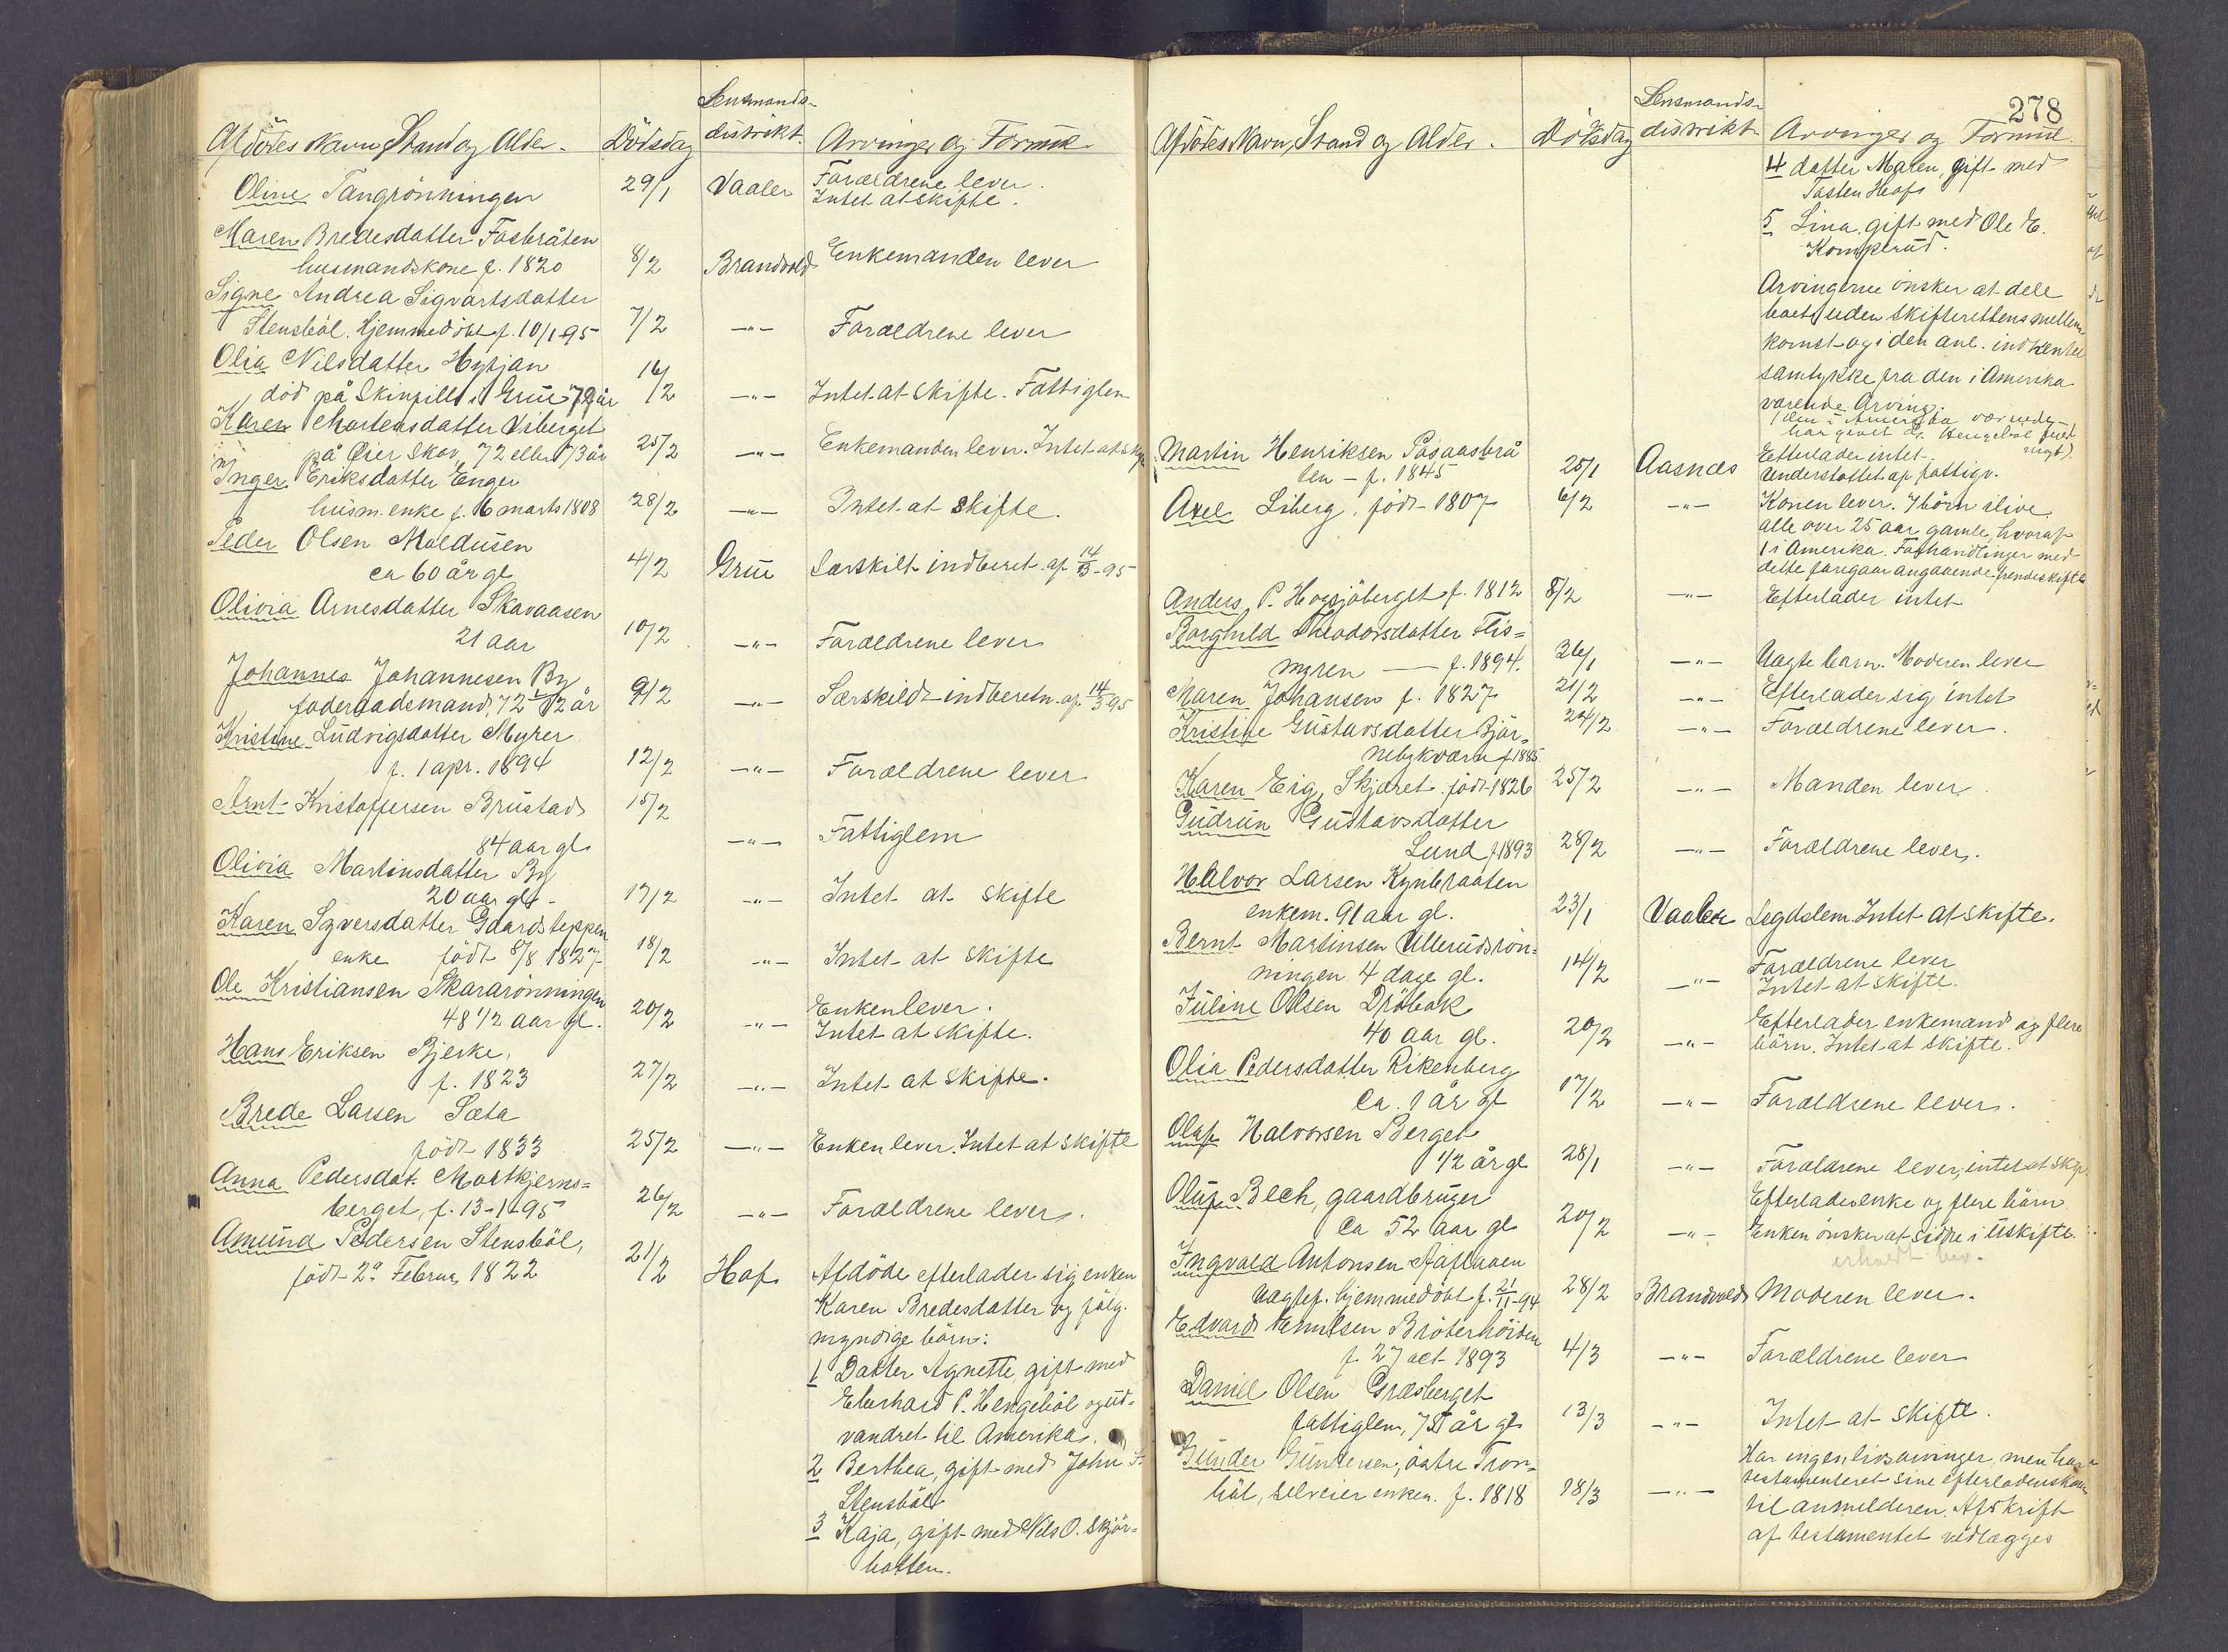 Lensmands-
Afdødes Navn Stand og Alder. Dødsdag distrikt. Arvinger og Formue
Oline Tangrönningen 29/1 Vaaler Forældrene lever.
Intet at skifte.
Maren Bredesdatter Fosbråten
husmandskone f. 1820 8/2 Brandvold Enkemanden lever
Signe Andrea Sigvartsdatter
Stensböl. Hjemmedöbt f. 10/1 95 7/2 -"- Forældrene lever
Olia Nilsdatter Hytjan
död på Skinpill i Grue 72 år 16/2 -"- Intet at skifte. Fattiglem
Karen Mortensdatter Viberget
på Öier Skov, 72 eller 73 år 25/2 -"- Enkemanden lever. Intet at skifte
Inger Eriksdatter Enger
husm. enke f. 6 marts 1808 28/2 -"- Intet at skifte.
Peder Olsen Moldusen
ca 60 år gl 4/2 Grue Særskilt indberet. af 14/3-95
Olivia Arnesdatter Skavaasen
21 aar 10/2 -"- Forældrene lever
Johannes Johannesen By
foderaadsmand, 72 1/2 år 9/2 -"- Særskildt indberetn. af 14/3 95
Kristine Ludvigsdatter Myrer
f. 1 apr. 1894 12/2 -"- Forældrene lever
Arnt Kristoffersen Brustad 15/2
84 aar gl -"- Fattiglem
Olivia Martinsdatter By
20 aar gl. 17/2 -"- Intet at skifte
Karen Syversdatter Gaardsteppen
enke födt 8/8 1827 18/2 -"- Intet at skifte
Ole Kristiansen Skararönningen
48 1/2 aar gl. 20/2 -"- Enken lever.
Intet at skifte.
Hans Eriksen Bjerke,
f. 1823 27/2 -"- Intet at skifte.
Brede Larsen Sæta
födt 1833 25/2 -"- Enken lever. Intet at skifte
Anna Pedersdat. Mortkjerns=
berget, f. 13-1-95 26/2 -"- Forældrene lever.
Amund Pedersen Stensböl,
födt 2. Februar 1822 21/2 Hof Afdöde efterlader sig enken
Karen Bredesdatter og fölg.
myndige börn:
1 Datter Agnette, gift med
Eberhard P. Hengeböl og ud-
vandret til Amerika.
2 Berthea, gift med John
Stensböl
3 Kaja, gift med Nils O. Skjör-
hatten.
278
Lensmands-
Afdödes Navn, Stand og Alder. Dödsdag distrikt Arvinger og Formue
4 datter Maren, gift med
Tosten Hof
5 Lina, gift med Ole E.
Komperud.
Arvingerne önsker at dele
boet uden skifterettens mellem-
komst og i den anl. indhentet
samtykke fra den i Amerika
værende Arving.
Martin Henriksen Påsaasbrå
ten - f. 1845 25/1 Aasnes Efterlader intet.
Understöttet af fattigv.
Axel Liberg, födt 1807 6/2 -"- Konen lever. 7 börn ilive
alle over 25 aar gamle, hvoraf
1 i Amerika. Forhandlinger med
dette foregaar angaaende frendeskifte
Anders P. Hogsjöberget f. 1812 8/2 -"- Efterlader intet
Borghild Theodorsdatter Flis=
myren — f. 1894. 26/1 -"- Uægte barn. Moderen lever
Maren Johansen f. 1827 21/2 -"- Efterlader sig intet
Kristine Gustavsdatter Björ-
nebykværn f. 1885. 24/2 -"- Forældrene lever.
Karen Eig, Skjæret födt 1826 25/2 -"- Manden lever
Gudrun Gustavsdatter
Lund f. 1893 28/2 -"- Forældrene lever.
Halvor Larsen Kynbraaten
enkem. 91 aar gl. 23/1 Vaaler Legdslem. Intet at skifte.
Bernt Martinsen Ullerudsrön=
ningen 4 dage gl. 14/2 -"- Forældrene lever
Intet at skifte.
Juline Olsen Dröbak
40 aar gl. 20/2 -"- Efterlader enkemand og flere
börn. Intet at skifte.
Olia Pedersdatter Rikenberg
Ca. 1 år gl 17/2 -"- Forældrene lever.
Olaf Halvorsen Berget
1/2 år gl 28/1 -"- Forældrene lever, intet at skifte
Oluf Bech, gaardbruger
Ca 52 aar gl 20/2 -"- Efterlader enke og flere börn
Enken önsker at sidde i uskifte.
erholdt bev.
Ingvald Antonsen
uægtef. hjemmedöbt f. 21/11-94 28/2 Brandvold Moderen lever.
Edvard Emilsen Bröterhöiden
f. 27 oct 1893 4/3 -"- Forældrene lever
Daniel Olsen Græsberget
fattiglem, 75 år gl 13/3 -"- Intet at skifte.
Gunder Gundersen, östre Tron-
böl, selveier enkem. f. 1818 18/3 -"- Har ingen livsarvinger, men har
testamenteret sine efterladenskaber
til anmelderen. Afskrift
af testamentet vedlægges